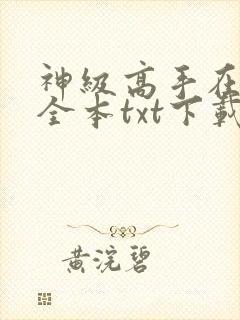 神级高手在
全本txt下载
黄浣碧